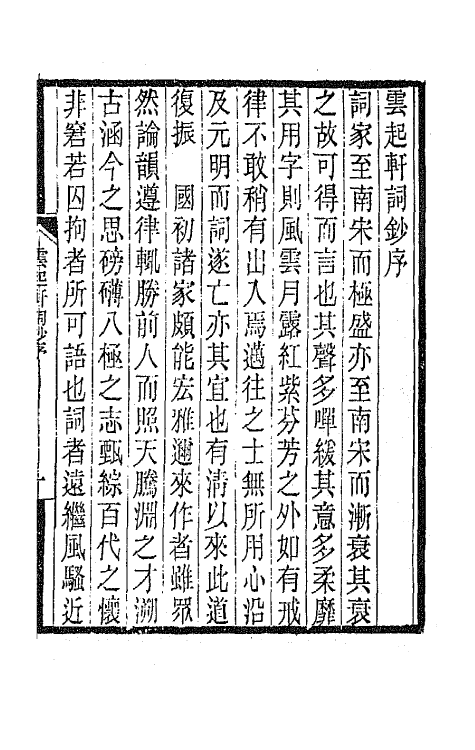 雲起軒詞鈔序
詞家至南宋而極盛亦至南宋而漸衰其衰
之故可得而言也其聲多嘽緩其意多柔靡
其用字則風雲月露紅紫芬芳之外如有戒
律不敢稍有出入焉邁往之士無所用心沿
及元明而詞遂亡亦其宜也有淸以來此道
復振　國初諸家頗能宏雅邇來作者雖眾
然論韻遵律輒勝前人而照天騰淵之才溯
古涵今之思磅礴八極之志甄綜百代之懷
非窘若囚拘者所可語也詞者遠繼風騷近
雲起軒詞鈔序
一